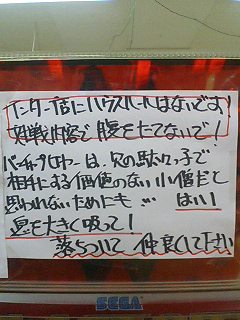 インター店にハウスルールはないです!
対戦内容で腹をたてないで!
バーチャファイターは、只の駄々っ子で
相手にする価値のない小僧だと
思われないためにも… はい!
息を大きく吸って!
落ちついて 仲良くして下さい
SEGA